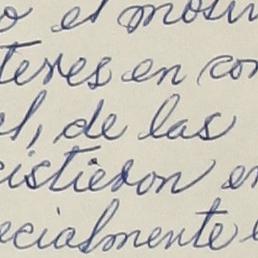 o el motiv
teres en con
el, de las
cistieron en
ecialmente e